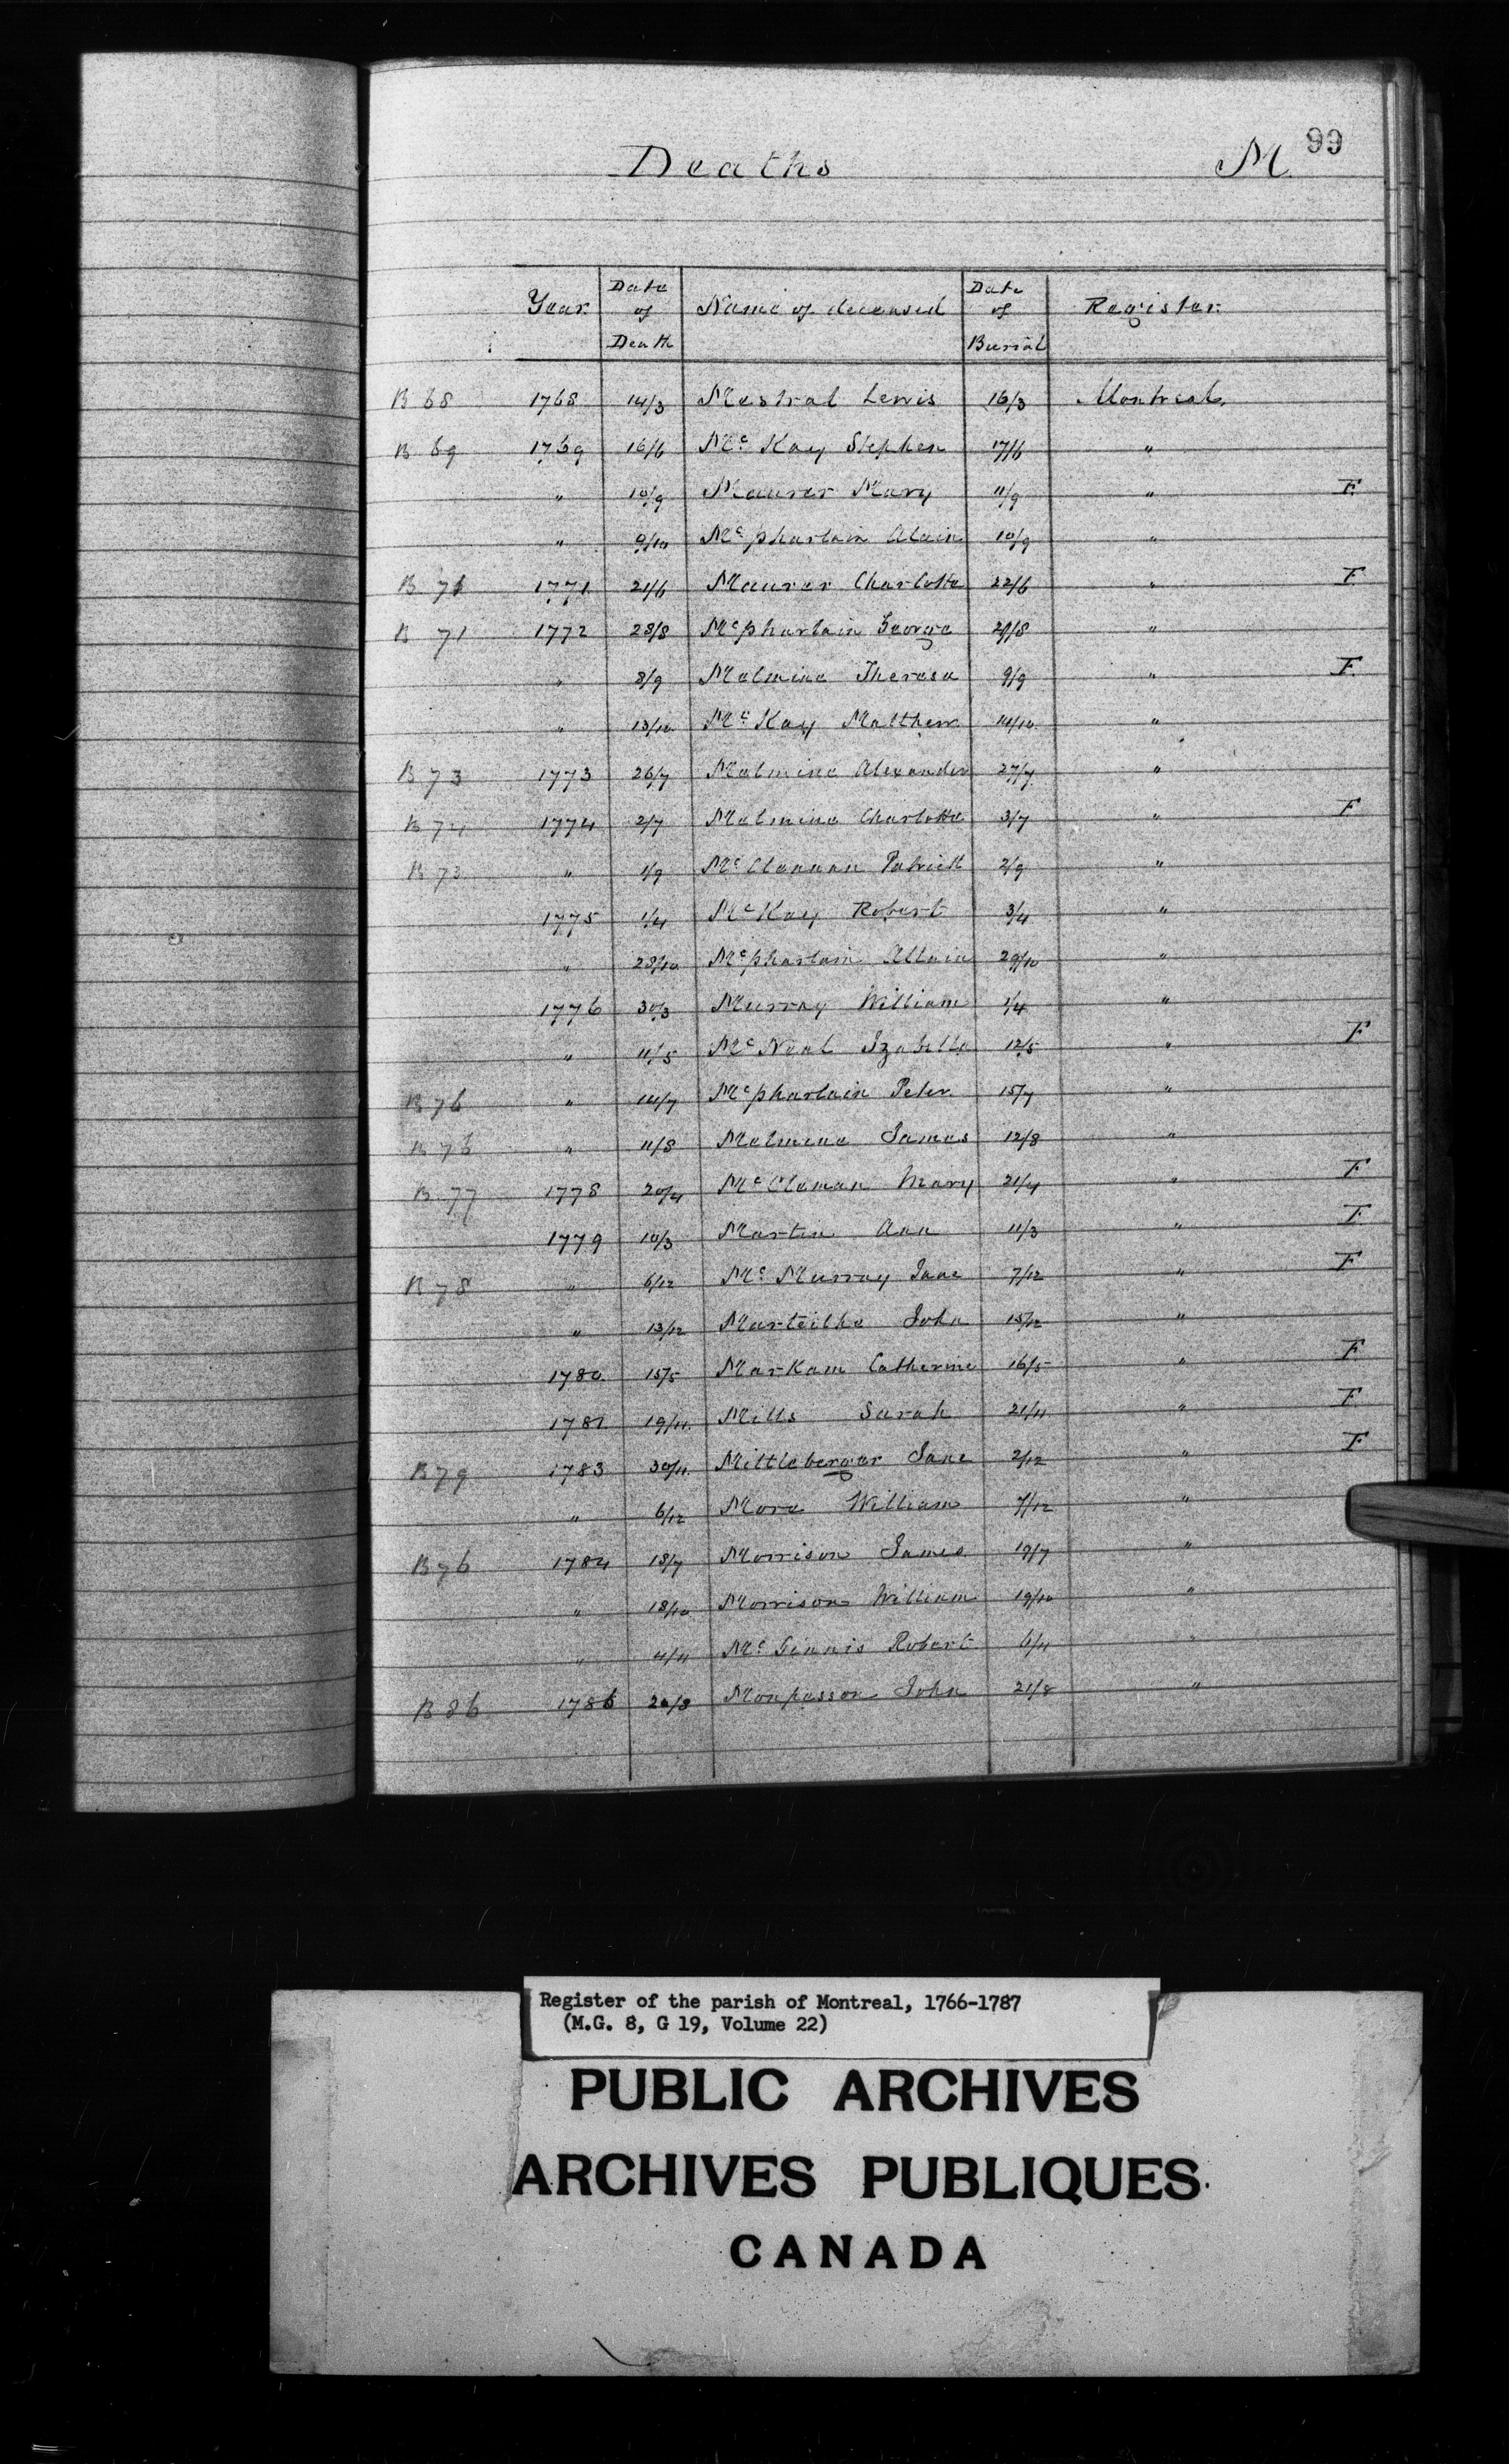 99
Deaths M.
Year Date of Death Name of deceased Date of Burial Register
B 68 1768 14/3 Mestral Lewis 16/3 Montreal
B 69 1769 16/6 Mc Kay Stephen 17/6 "
" 10/9 Maurer Mary 11/9 " F
" 9/10 Mcpharlain Alain 10/9 "
B 71 1771 21/6 Maurer Charlotte 22/6 " F
B 71 1772 28/8 Mcpharlain George 29/8 "
" 8/9 Malmine Theresa 9/9 " F.
" 13/10 Mc Kay Matthew 14/10 "
B 73 1773 26/7 Malmine Alexander 27/7 "
B 74 1774 2/7 Malmine Charlotte 3/7 " F
B 73 " 1/9 Mc Clannan Patrick 2/9 "
1775 1/4 Mc Kay Robert 3/4 "
" 28/10 Mcpharlain Allain 29/10 "
1776 30/3 Murray William 1/4 "
" 11/5 Mc Neal Izabella 12/5 " F
B 76 " 14/7 Mcpharlain Peter 15/7 "
B 76 " 11/8 Malmine James 12/8 "
B 77 1778 20/4 Mc Claman Mary 21/4 " F
1779 10/3 Martin Ann 11/3 " F
B 78 " 6/12 Mc Murray Jane 7/12 " F
" 13/12 Marteilhe John 15/12 "
1780 15/5 Markam Catherine 16/5 " F
1781 19/11 Mills Sarah 21/11 " F
B 79 1783 30/11 Mittleberger Jane 2/12 " F
" 6/12 More William 7/12 "
B 76 1784 18/7 Morrison James 19/7 "
" 18/10 Morrison William 19/10 "
" 4/11 Mc Ginnis Robert 6/11 "
B 86 1786 20/8 Monpasson John 21/8 "
Register of the parish of Montreal, 1766-1787
(M.G. 8, G 19, Volume 22)
PUBLIC ARCHIVES
ARCHIVES PUBLIQUES
CANADA